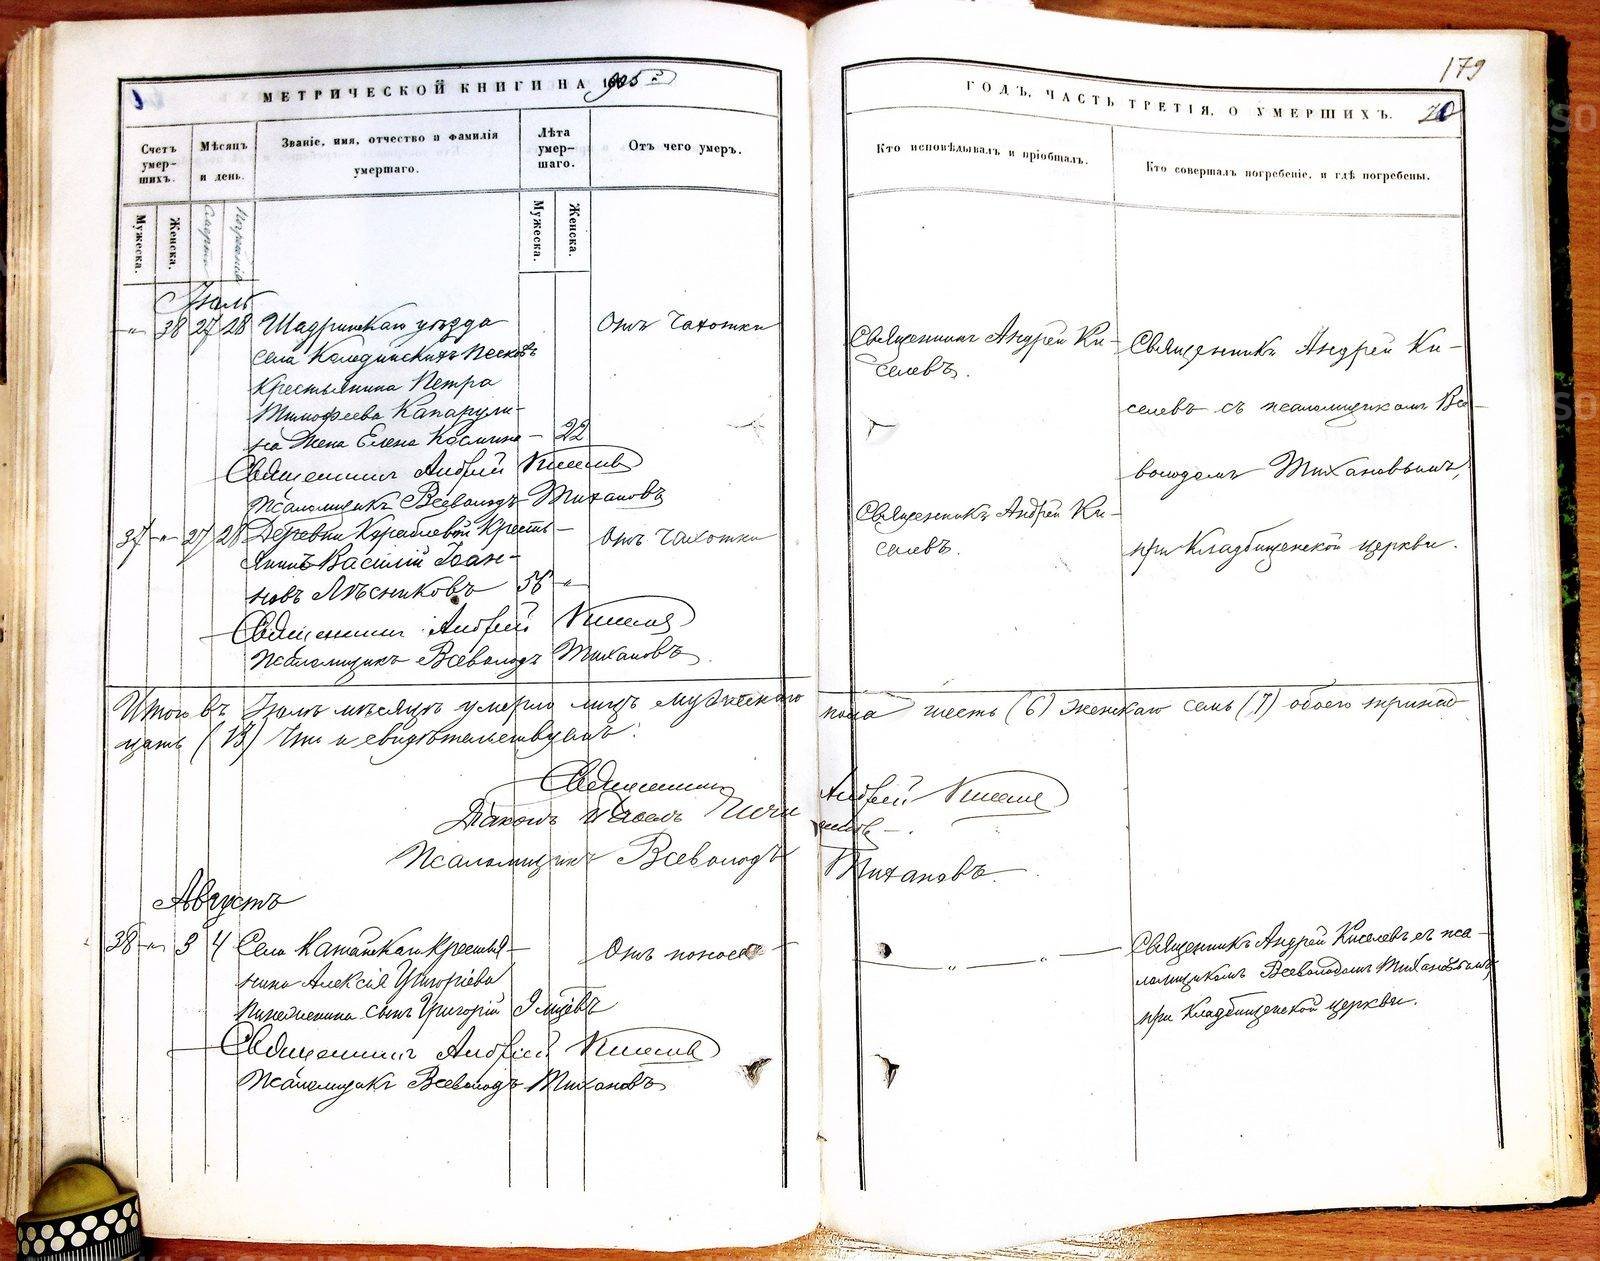 МЕТРИЧЕСКОЙ КНИГИ НА 1905 й
Счетъ умер-шихъ.
Мѣсяцъ и день.
Званіе, имя, отчество и фамилія умершаго.
Лѣта умер-шаго.
Отъ чего умеръ.
Мужеска.
Женска.
Смерти
Погребенія
Мужеска.
Женска.
Іюль
-"- 38 27 28 Шадринскаго уѣзда Отъ Чахотки
села Колединскихъ Песковъ
крестьянина Петра
Тимофеева
на жена Елена Космина - 22
Священникъ Андрей Киселевъ
Псаломщикъ Всеволодъ Тихановъ
37 -"- 27 28 Деревни Кораблевой Кресть- Отъ Чахотки
янинъ Василій Іоан-
новъ Лѣсниковъ 56 "
Священникъ Андрей Киселевъ
Псаломщикъ Всеволодъ Тихановъ.
Итого въ Іюлѣ мѣсяцѣ умерло лицъ мужескаго
цать (13) Что и свидѣтельствуемъ:
Священникъ
Діаконъ
Псаломщикъ Всеволодъ
Августъ
38 -"- 3 4 Села Катайскаго Крестья- Отъ поноса
нина Алексія Григоріева
сынъ Григорій 9 мцевъ
Священникъ Андрей Киселевъ
Псаломщикъ Всеволодъ Тихановъ
179
ГОДЪ, ЧАСТЬ ТРЕТІЯ, О УМЕРШИХЪ. 20
Кто исповѣдывалъ и пріобщалъ.
Кто совершалъ погребеніе, и гдѣ погребены.
Священникъ Андрей Ки-
селевъ.
Священникъ Андрей Ки-
селевъ съ псаломщикомъ Все-
володомъ Тихановымъ,
при Кладбищенской церкви.
Священникъ Андрей Ки-
селевъ.
пола шесть (6) женскаго семь (7) обоего тринад
Андрей Киселевъ
Тихановъ.
" "
Священникъ Андрей Киселевъ съ пса-
ломщикомъ Всеволодомъ Тихановымъ
при Кладбищенской церкви.